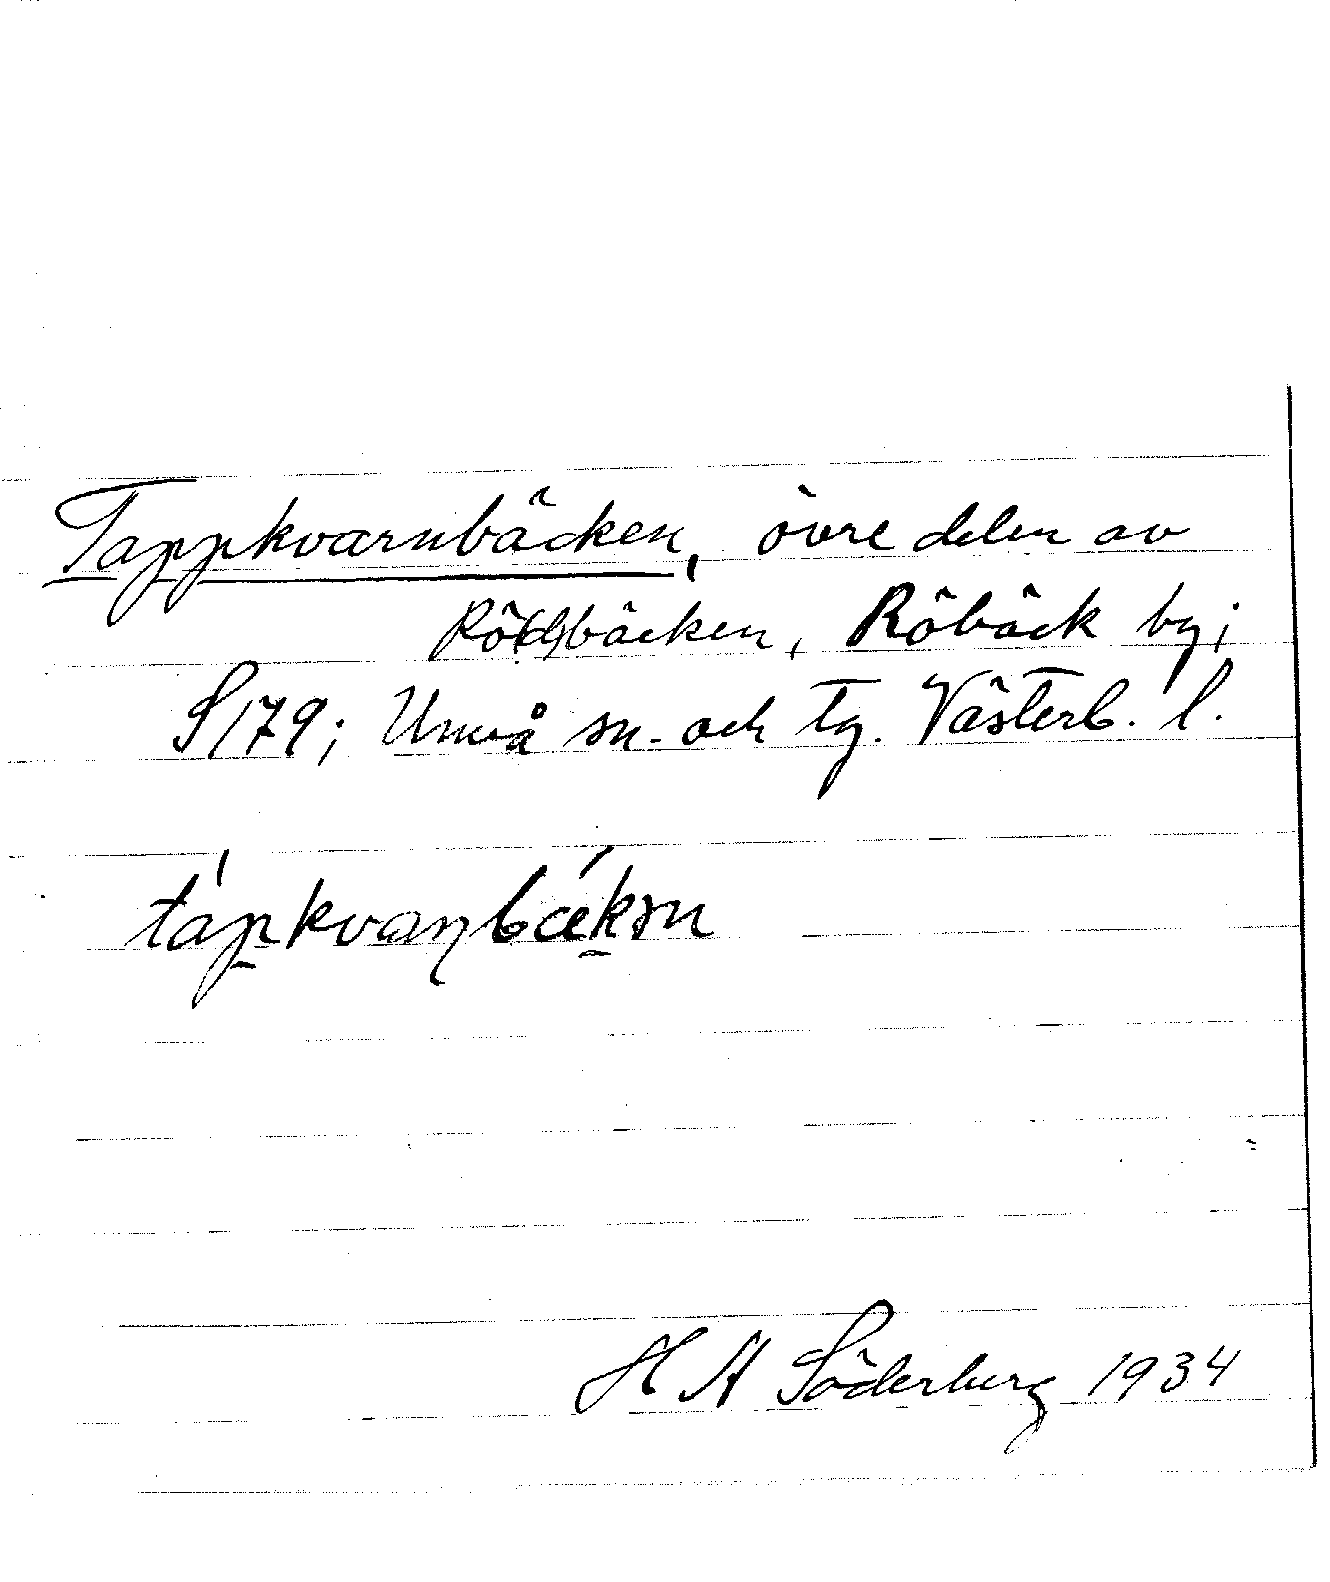 Tappkvarnbäcken, övre delen av
Rödbäcken, Röbäck by;
S179; Umeå sn. och tg. Västerb. l.
tápkvaɳbǽkǝn
H A Söderberg 1934